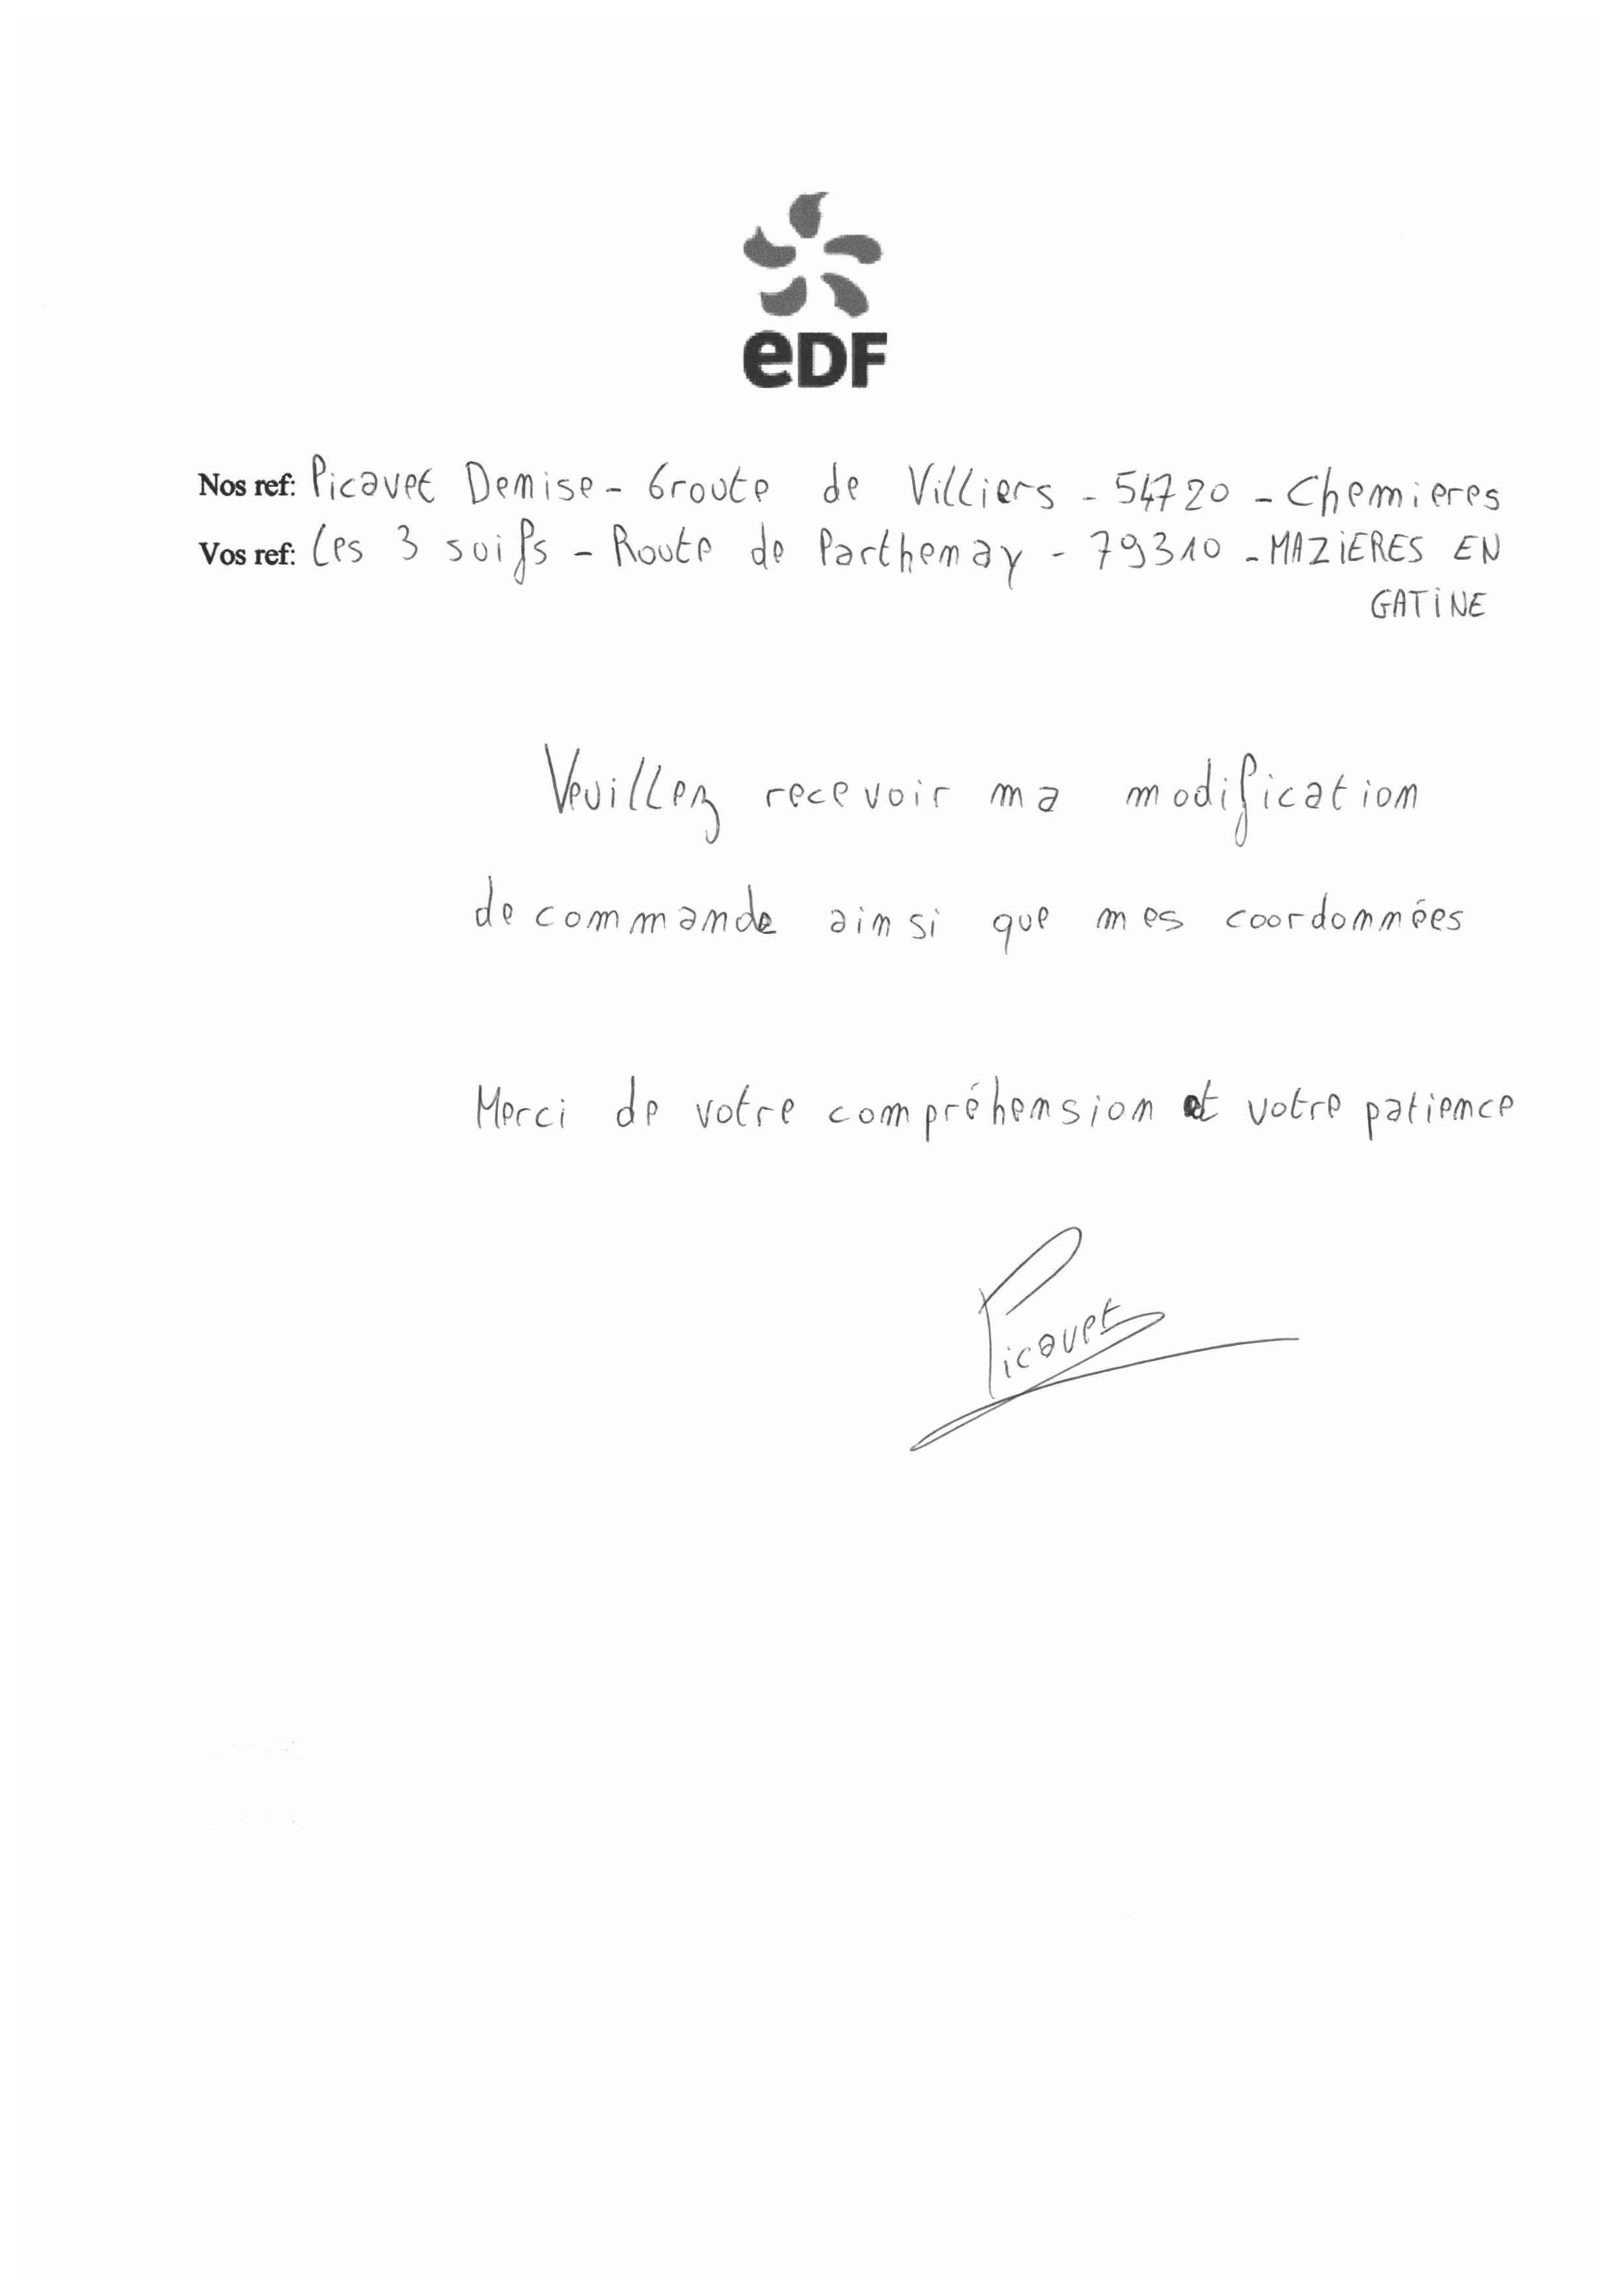 eDF
Nos ref: Picavet Denise - 6 route de Villiers - 54720 - Chenieres
Vos ref: Les 3 soifs - Route de Parthenay - 79310 - MAZIERES EN
GATINE
Veuillez recevoir ma modification
de commande ainsi que mes coordonnées
Merci de votre compréhension et votre patience
Picavet